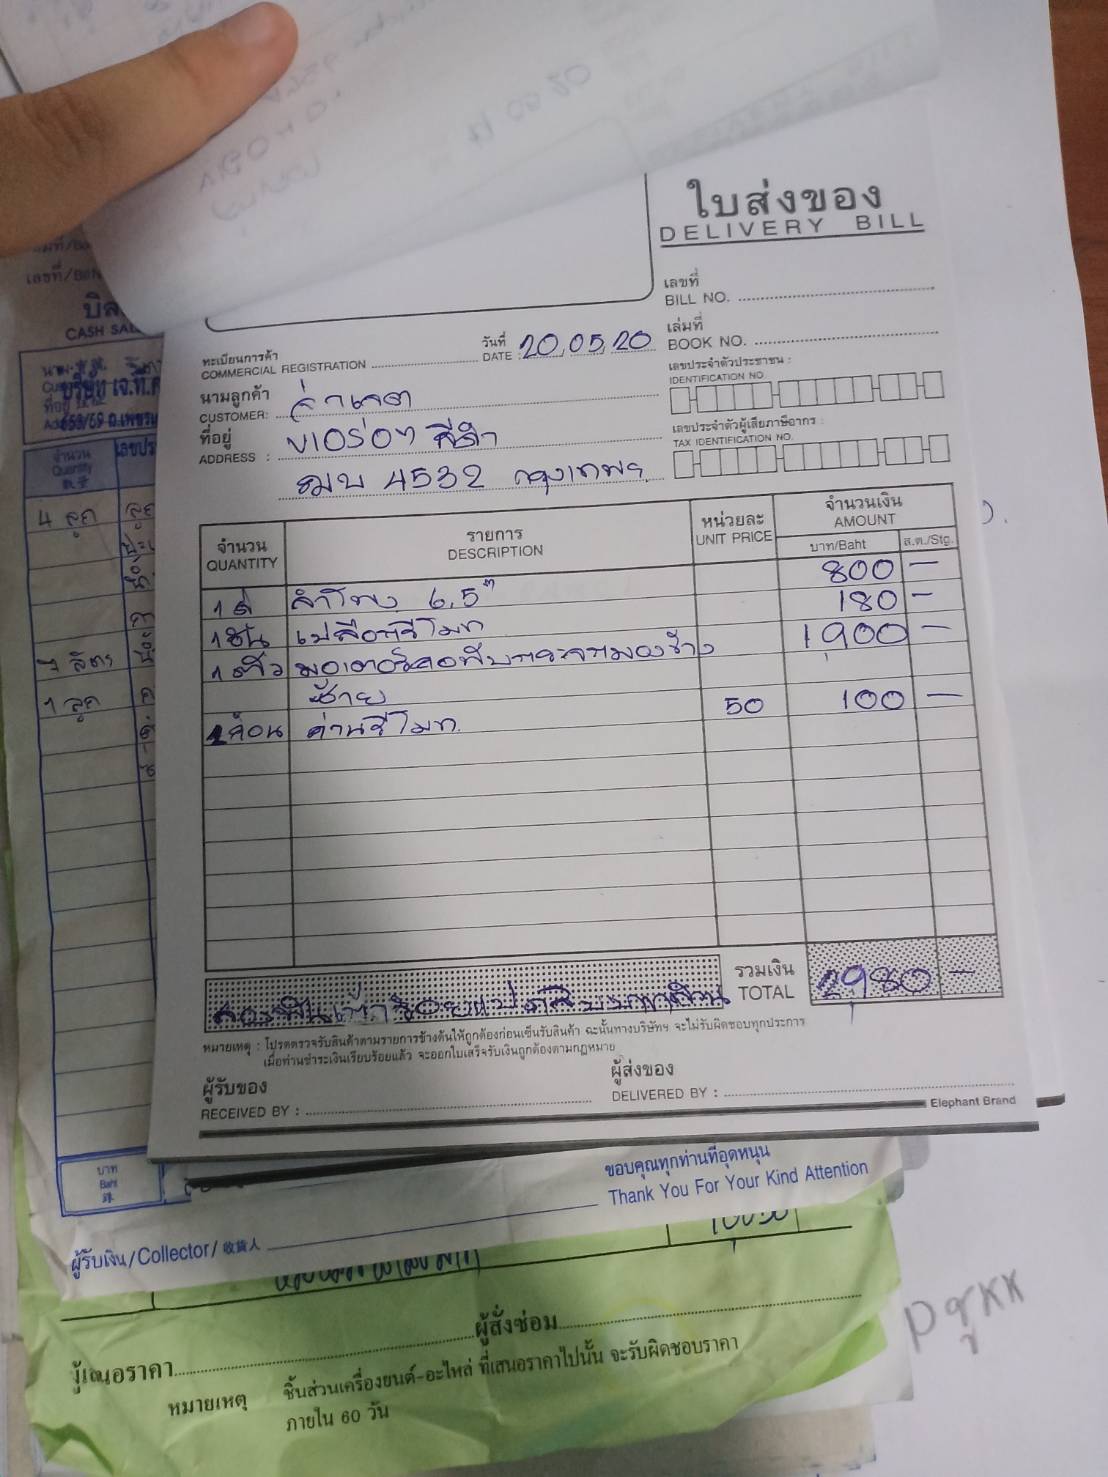 ใบส่งของ
DELIVERY BILL
เลขที่
BILL NO.
เล่มที่
BOOK NO.
ทะเบียนการค้า
COMMERCIAL REGISTRATION
วันที่
DATE : 20,05,20
นามลูกค้า
CUSTOMER:
ที่อยู่
ADDRESS :
4532 กรุงเทพฯ
เลขประจำตัวประชาชน :
IDENTIFICATION NO.
เลขประจำตัวผู้เสียภาษีอากร :
TAX IDENTIFICATION NO.
จำนวน
QUANTITY
รายการ
DESCRIPTION
หน่วยละ
UNIT PRICE
จำนวนเงิน
AMOUNT
บาท/Baht ส.ต./Stg.
1 คู่ ลำโพง 6.5" 800 —
1 อัน เปลือกรีโมท 180 —
1 ตัว มอเตอร์คอพับกระจกมองข้าง 1,900 —
ซ้าย
2 ก้อน ถ่านรีโมท 50 100 —
สองพันเก้าร้อยแปดสิบบาทถ้วน
รวมเงิน
TOTAL 2,980 —
หมายเหตุ : โปรดตรวจรับสินค้าตามรายการข้างต้นให้ถูกต้องก่อนเซ็นรับสินค้า ฉะนั้นทางบริษัทฯ จะไม่รับผิดชอบทุกประการ
เมื่อท่านชำระเงินเรียบร้อยแล้ว จะออกใบเสร็จรับเงินถูกต้องตามกฎหมาย
ผู้รับของ
RECEIVED BY :
ผู้ส่งของ
DELIVERED BY :
Elephant Brand
CASH SAL
จำนวน
Quantity
4 ลูก
1 ลูก
บาท
Baht
ขอบคุณทุกท่านที่อุดหนุน
Thank You For Your Kind Attention
ผู้รับเงิน/Collector/收貨人
ผู้สั่งซ่อม
ผู้เสนอราคา
หมายเหตุ ชิ้นส่วนเครื่องยนต์-อะไหล่ ที่เสนอราคาไปนั้น จะรับผิดชอบราคา
ภายใน 60 วัน